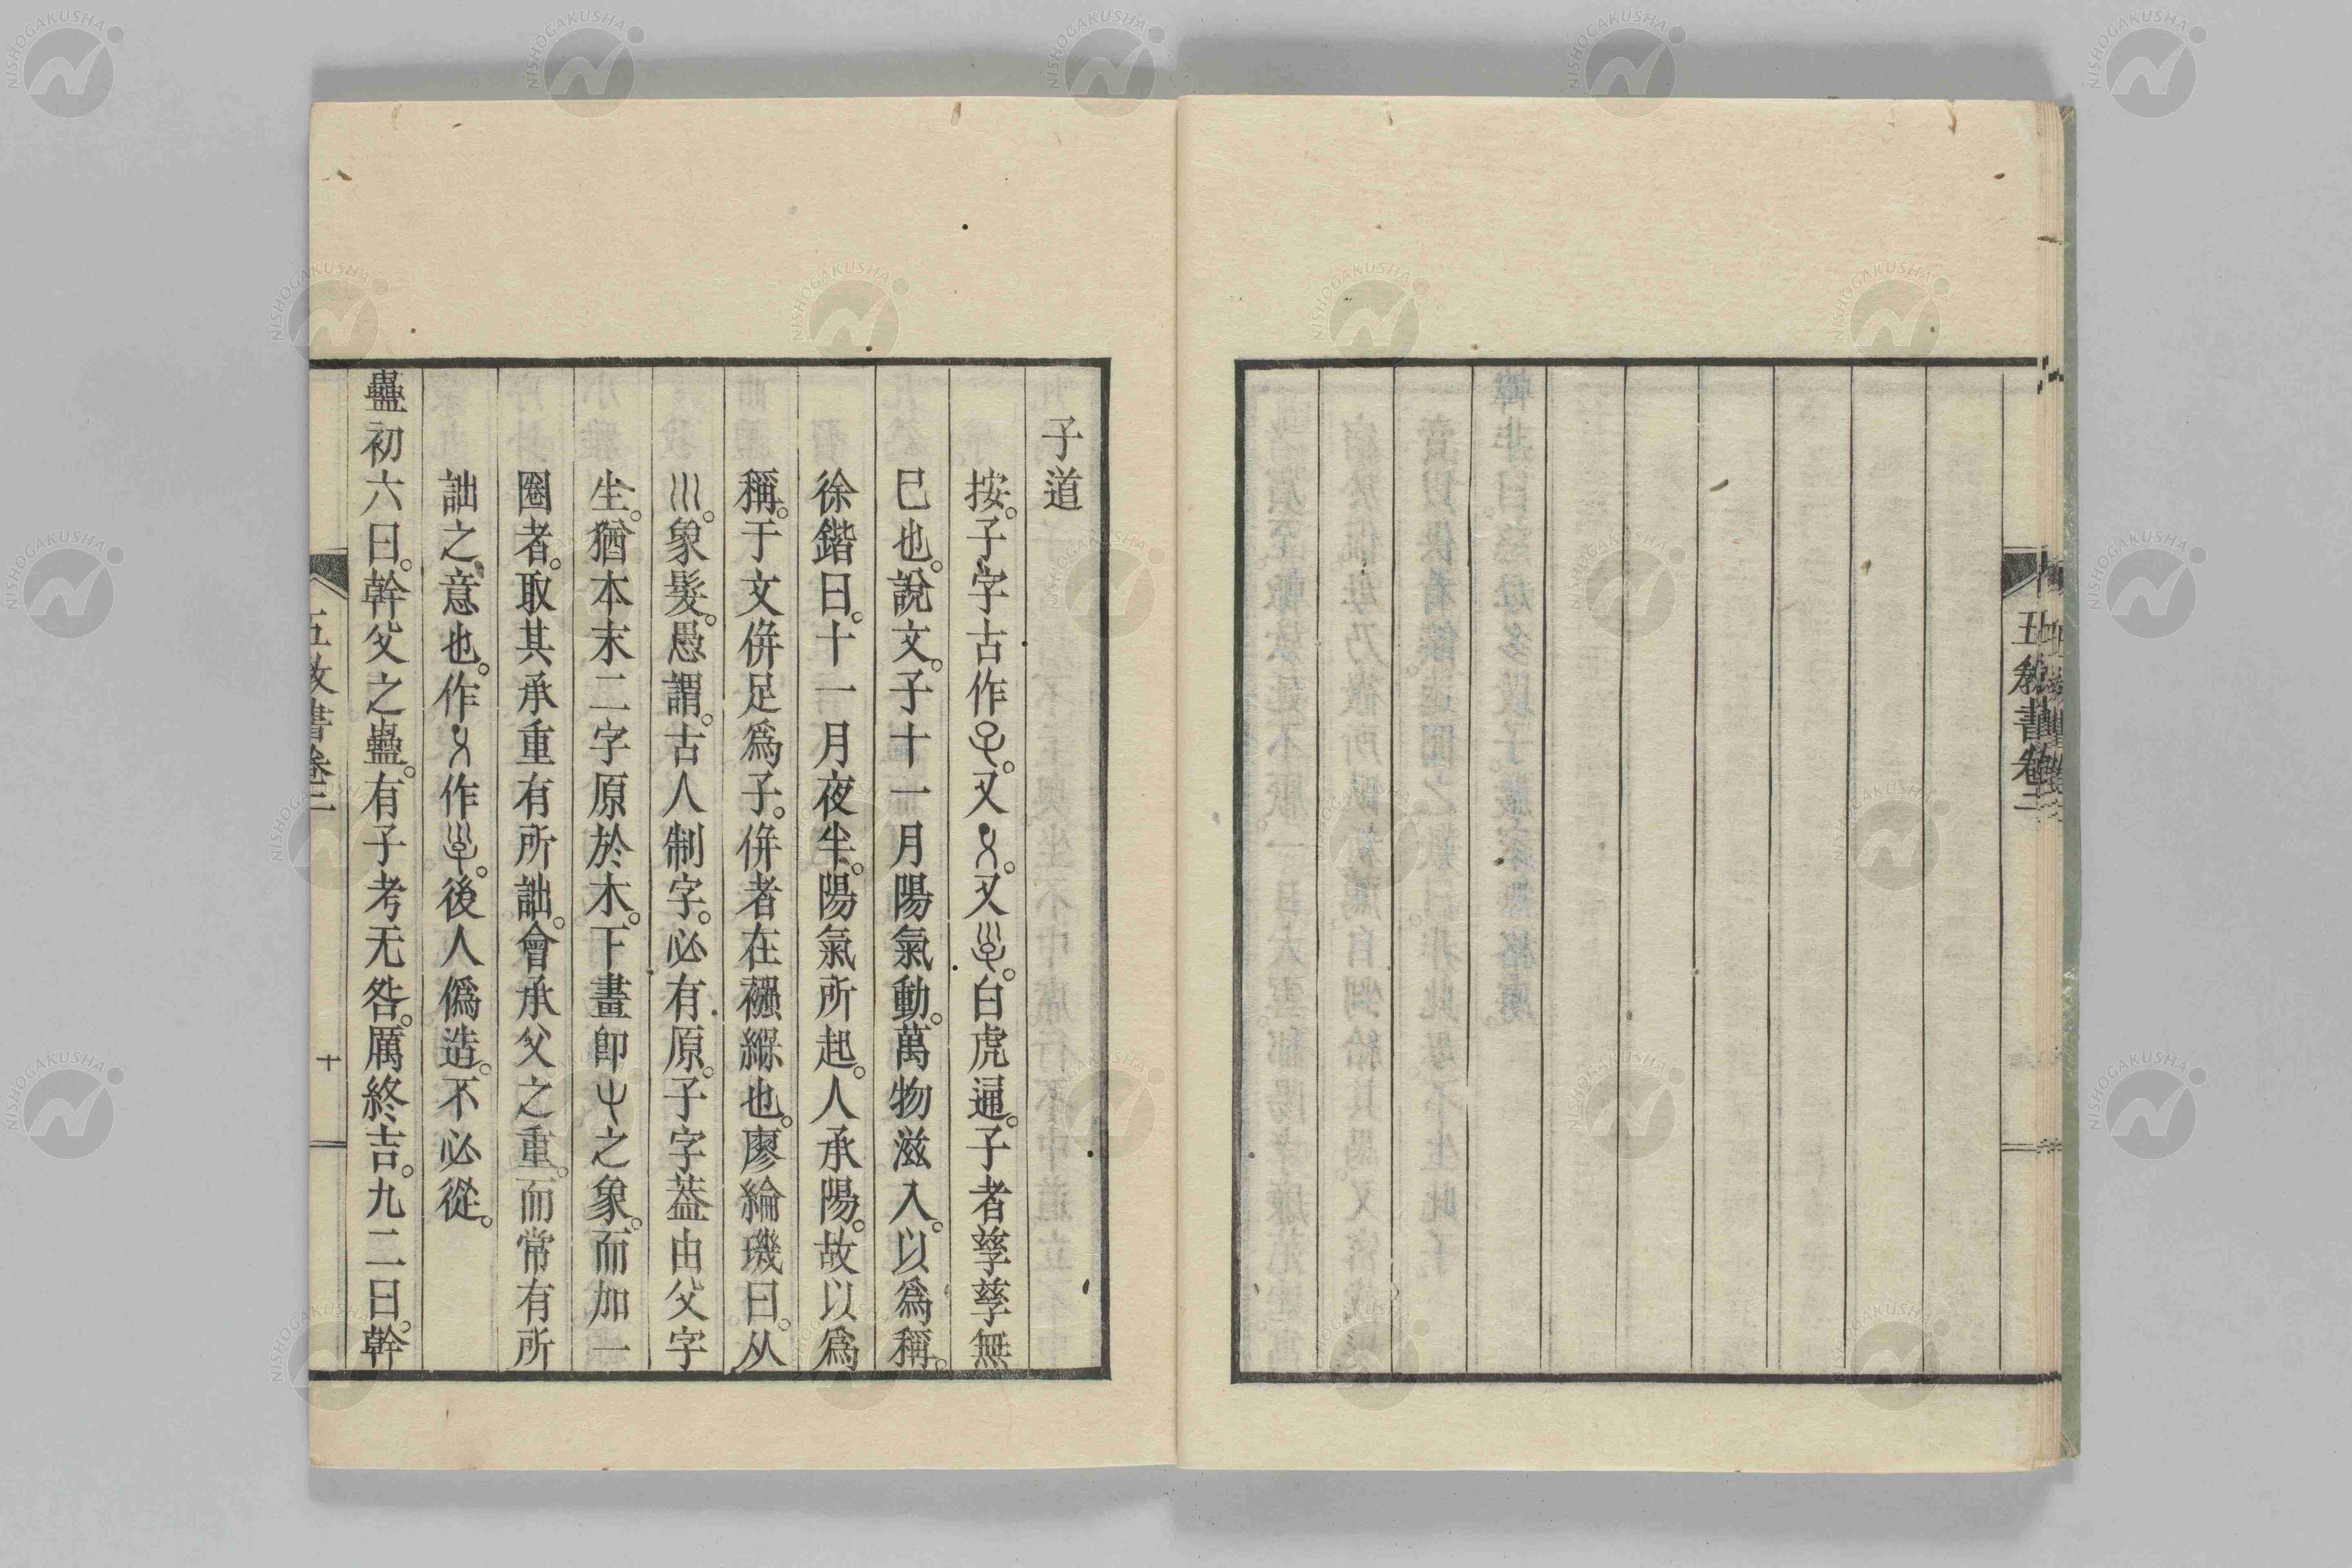 五教書卷二
子道
按。子字古作。又。又。白虎通。子者孳孳無
已也。說文。子十一月陽氣動。萬物滋入。以爲稱。
徐鍇曰。十一月夜半。陽氣所起。人承陽。故以爲
稱。于文併足爲子。併者在襁緥也。廖綸璣曰。从
巛。象髮。愚謂。古人制字。必有原。子字葢由父字
生。猶本末二字原於木。下畫卽之象。而加一
圈者。取其承重有所詘。會承父之重。而常有所
詘之意也。作作。後人僞造。不必從。
蠱初六曰。幹父之蠱。有子考无咎。厲終吉。九二曰。幹
五教書卷三
十
NISHOGAKUSHA